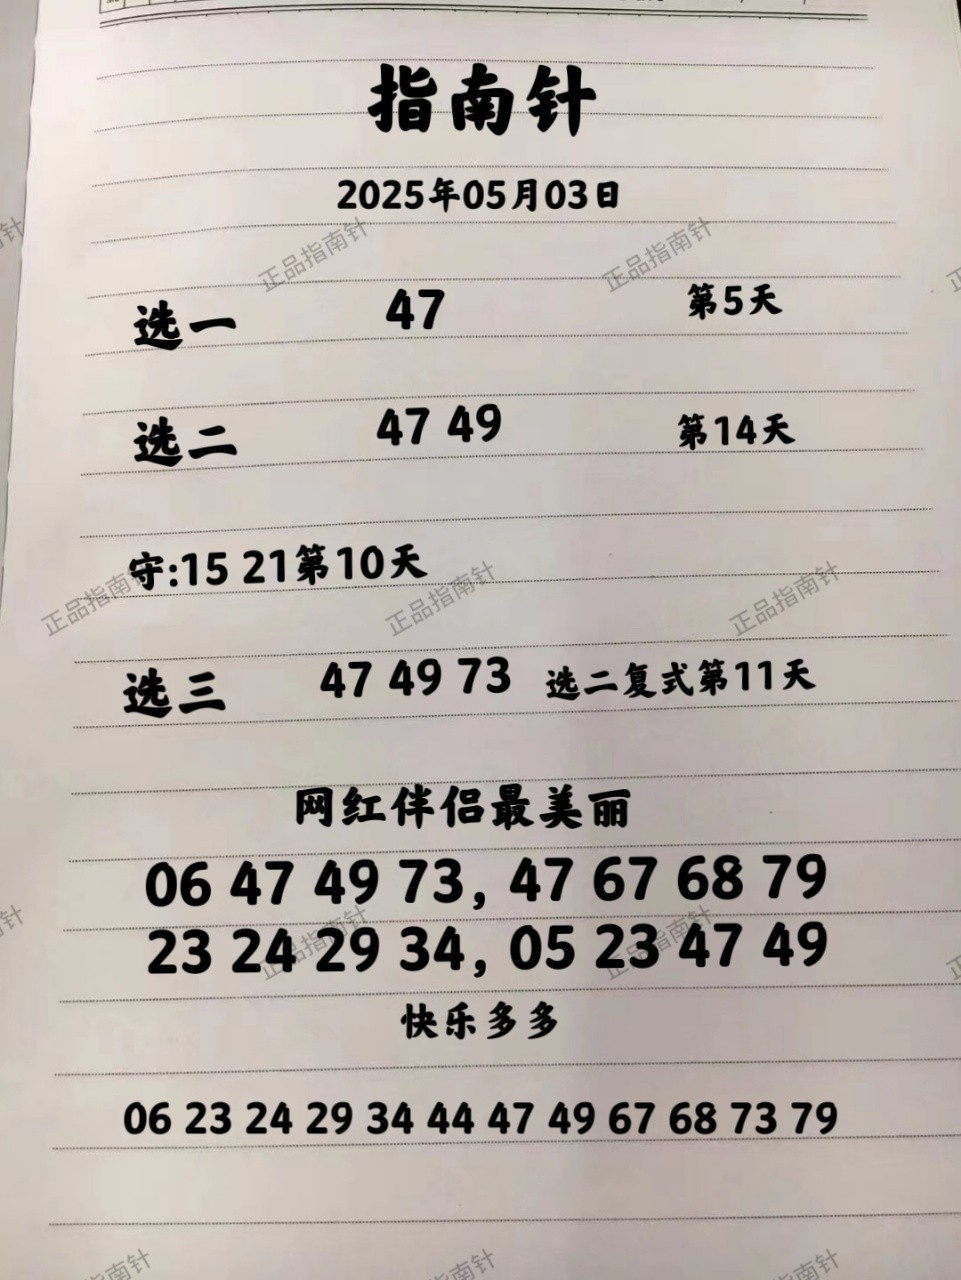 指南针
2025年05月03日
正品指南针 正品指南针
选一 47 第5天
选二 47 49 第14天
守:15 21第10天
正品指南针 正品指南针 正品指南针
选三 47 49 73 选二复式第11天
网红伴侣最美丽
06 47 49 73, 47 67 68 79
23 24 29 34, 05 23 47 49
正品指南针 正品指南针
快乐多多
06 23 24 29 34 44 47 49 67 68 73 79